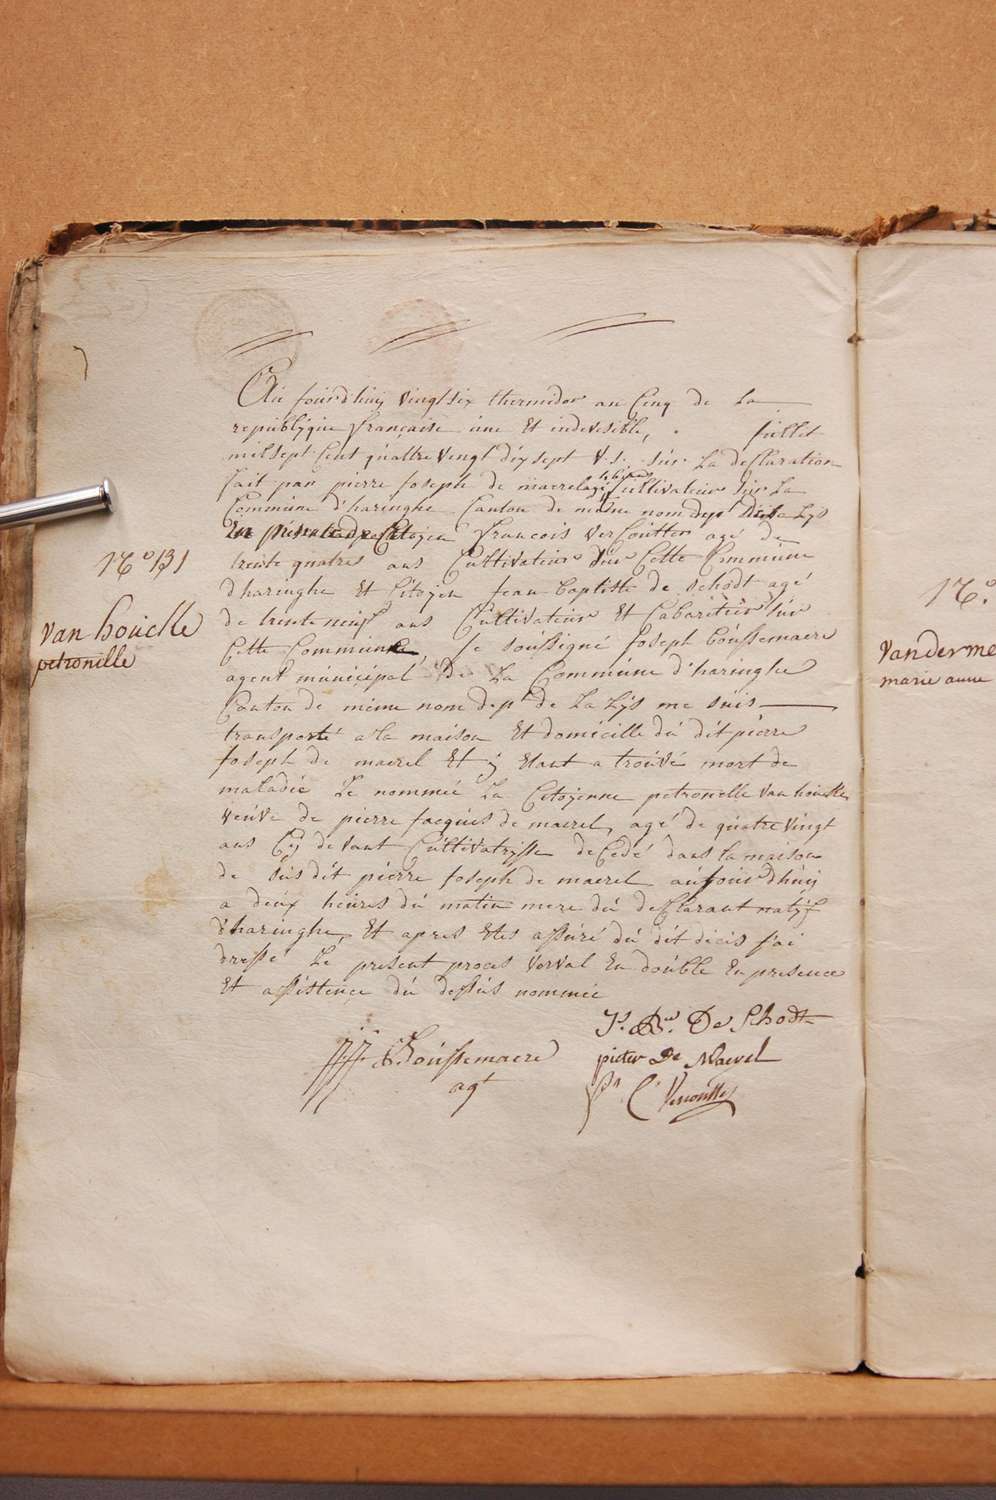 Au jourdhuij vingtsix thermidor an Cinq de La
republyque française une Et indevisible, juillet
milsept Cent quattre vingt dix sept v.s. sur La desclaration
fait par pierre joseph de maerel agé Cultivateur sur La
Commune d'haringhe Canton de même nom dept de La Lys
Citoyen francois verCoutter agé de
trente quatre ans Cultivateur sur Cette Commune
d'haringhe Et Citoyen jean baptiste de schodt agé
de trente neuf ans Cultivateur Et Cabaritier sur
Cette Commune, je soussigné joseph boussemaere
agent municipal de La Commune d'haringhe
Canton de même nom dept de La Lys me suis
transporté a la maison Et domicille du dit pierre
joseph de maerel Et ij Etant a trouvé mort de
maladie Le nommée La Citoyenne petronelle van houcke
veuve de pierre jacques de maerel, agé de quatre vingt
ans Cij devant Cultivatrisse decedé dans la maison
de susdit pierre joseph de maerel aujourdhuij
a deux heures du matin mere du desclarant natijf
d'haringhe, Et apres Etes assuré du dit dicis j'ai
dressé Le present proces verval En double En presence
Et assistence du dessus nommée
N.º 131
van houcke
petronille
Js. Bte. De Schodt
pieter De Maerel
J: J: Boussemaere
agt
frs C. Vercoutter
N.º
vanderme
marie anne